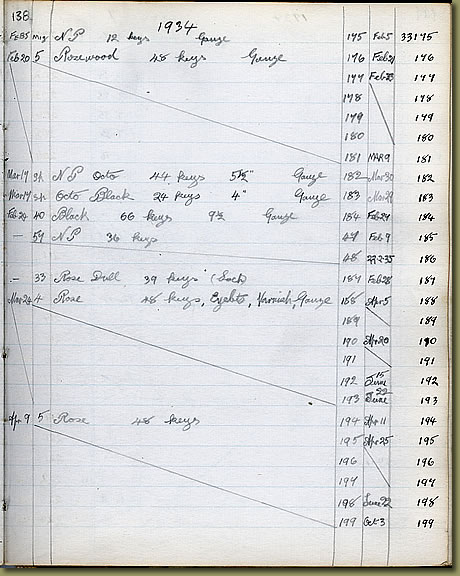 138. 1934
Feb 5 N P 12 keys Gauze 175 Feb 5 33175
Feb 20 5 Rosewood 48 keys Gauze 176 Feb 176
177 Feb 23 177
178 178
179 179
180 180
181 MAR 9 181
Mar 17 N P Octo 44 keys 5½" Gauze 182 Mar 182
Mar 17 Octo Black 24 keys 4" Gauze 183 Mar 183
Feb 24 40 Black 66 keys 9½ Gauze 184 Feb 184
— 59 N P 36 keys 47 Feb 9 185
48 27-2-35 186
— 33 Rose Dull 39 keys 187 Feb 28 187
Mar 24 4 Rose 48 keys, Eyelets, Varnish Gauze 188 Apr 5 188
189 189
190 Apr 20 190
191 191
192 June 15 192
193 June 22 193
Apr 9 5 Rose 48 keys 194 Apr 11 194
195 Apr 25 195
196 196
197 197
198 June 22 198
199 Oct 3 199